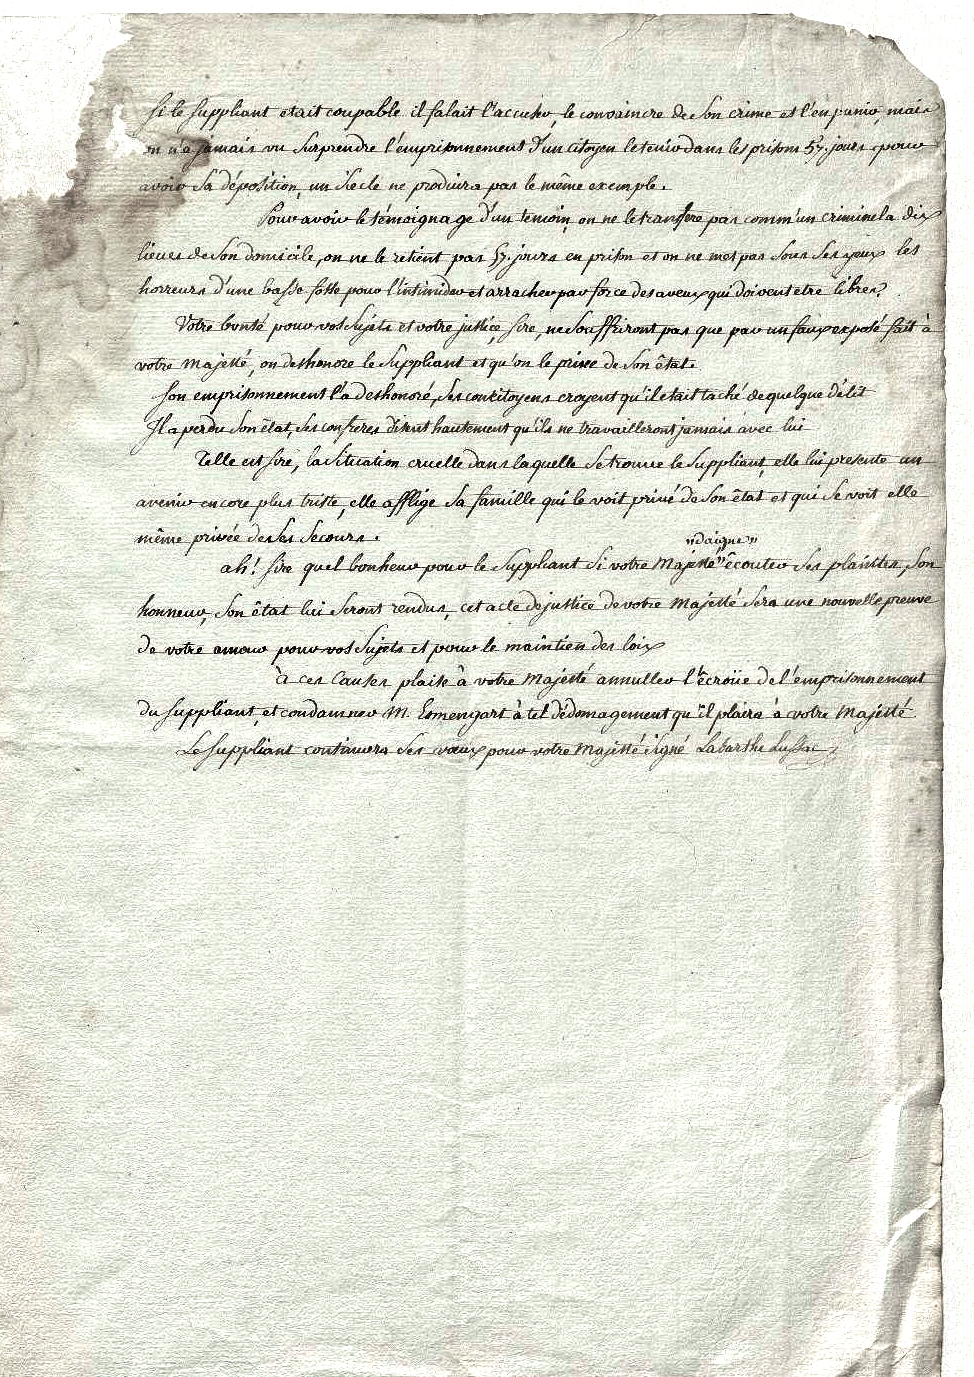 Si le Suppliant etait coupable il falait l'accuser, le convaincre de Son crime et l'en punir, mais
on n'a jamais vu Surprendre l'emprisonnement d'un citoyen le tenir dans les prisons 57. jours pour
avoir Sa déposition, un Siecle ne produira pas le même exemple.
Pour avoir le témoignage d'un temoin, on ne le transfere pas comm'un criminel a dix
lieues de Son domicile, on ne le retient pas 57. jours en prison et on ne met pas Sous Ses yeux les
horreurs d'une basse fosse pour l'intimider et arracher par force des aveux qui doivent etre libres.
Votre bonté pour vos Sujets et votre justice, Sire, ne Souffriront pas que par un faux exposé fait à
votre Majesté, on deshonore le Suppliant et qu'on le prive de Son êtat.
Son emprisonnement l'a deshonoré, Ses concitoyens croyent qu'il etait taché de quelque délit
Il a perdu Son êtat, Ses confreres disent hautement qu'ils ne travailleront jamais avec lui
Telle est Sire, la Situation cruelle dans laquelle Se trouve le Suppliant, elle lui presente un
avenir encore plus triste, elle afflige Sa famille qui le voit privé de Son êtat et qui Se voit elle
même privée de Ses Secours.
"daigne"
ah! Sire quel bonheur pour le Suppliant Si votre Majesté " écouter Ses plaintes, Son
honneur, Son êtat lui Seront rendus, cet acte de justice de votre Majesté Sera une nouvelle preuve
de votre amour pour vos Sujets et pour le maintien des loix
À ces Causes plaise à votre Majesté annuller l'écroüe de l'emprisonnement
du Suppliant, et condamner M. Esmengart à tel dédomagement qu'il plaira à votre Majesté
Le Suppliant continuera Ses vœux pour votre Majesté Signé Labarthe Lussac